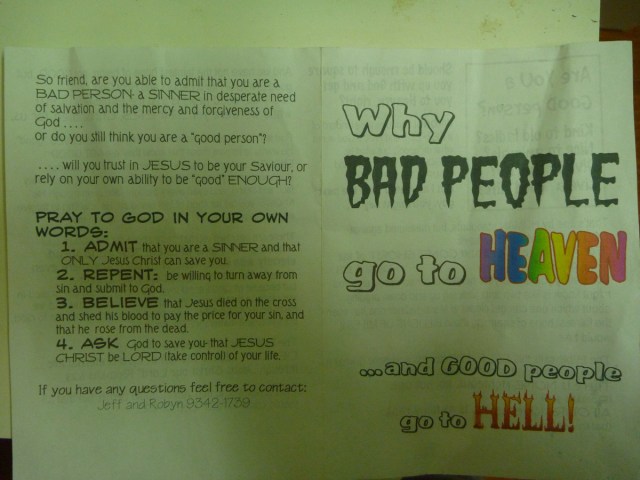 So friend, are you able to admit that you are a
BAD PERSON: a SINNER in desperate need
of salvation and the mercy and forgiveness of
God ....
or do you still think you are a "good person"?
.... will you trust in JESUS to be your Saviour, or
rely on your own ability to be "good" ENOUGH?
PRAY TO GOD IN YOUR OWN
WORDS:
1. ADMIT that you are a SINNER and that
ONLY Jesus Christ can save you.
2. REPENT: be willing to turn away from
sin and submit to God.
3. BELIEVE that Jesus died on the cross
and shed his blood to pay the price for your sin, and
that he rose from the dead.
4. ASK God to save you-that JESUS
CHRIST be LORD (take control) of your life.
If you have any questions feel free to contact:
Jeff and Robyn 9342-1739
Why
BAD PEOPLE
go to HEAVEN
...and GOOD people
go to HELL!